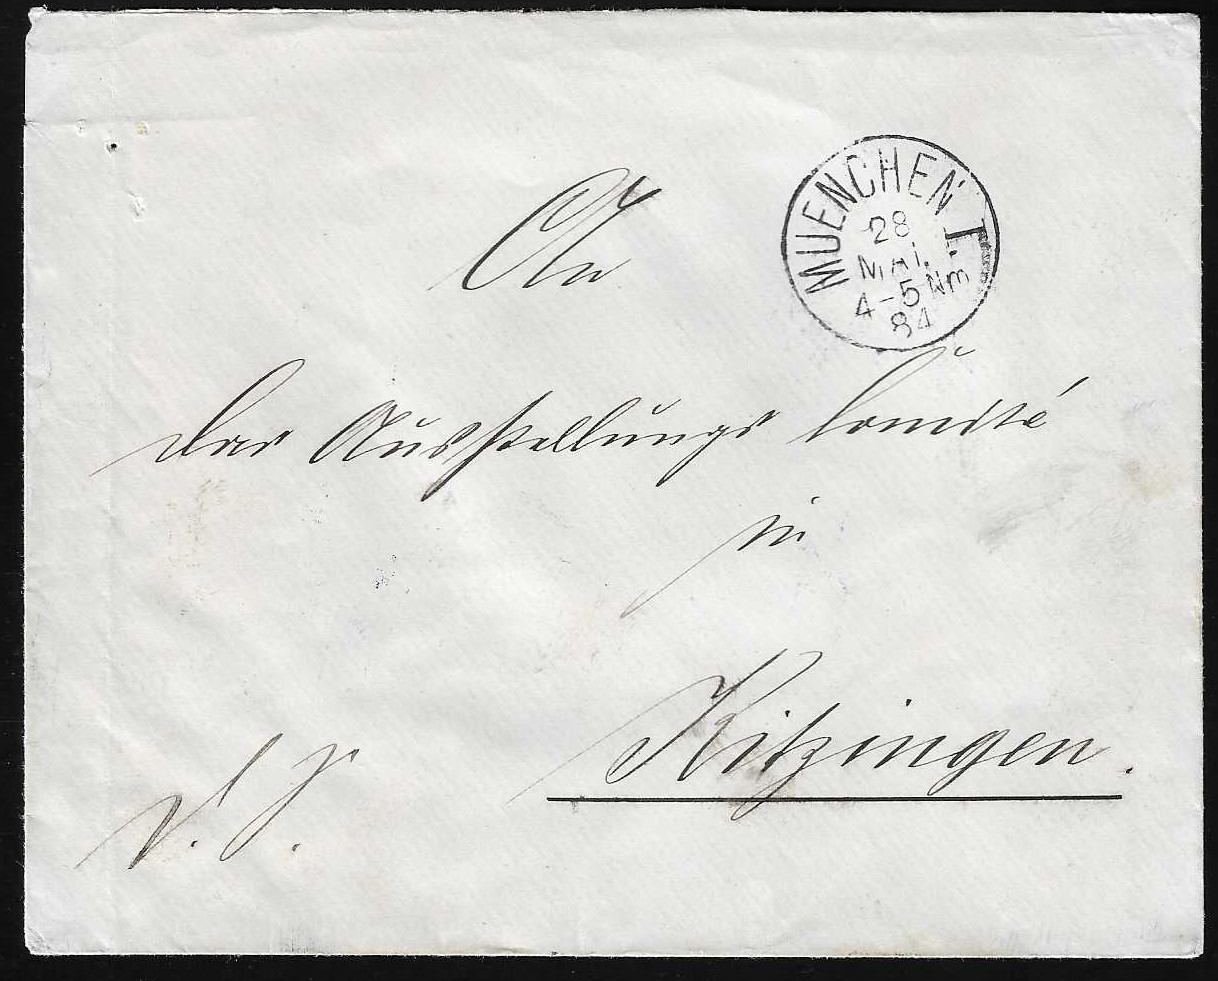 MUENCHEN I.
28
MAI.
4-5 Nm
84
An
das Ausstellungs Comité
in
Kitzingen.